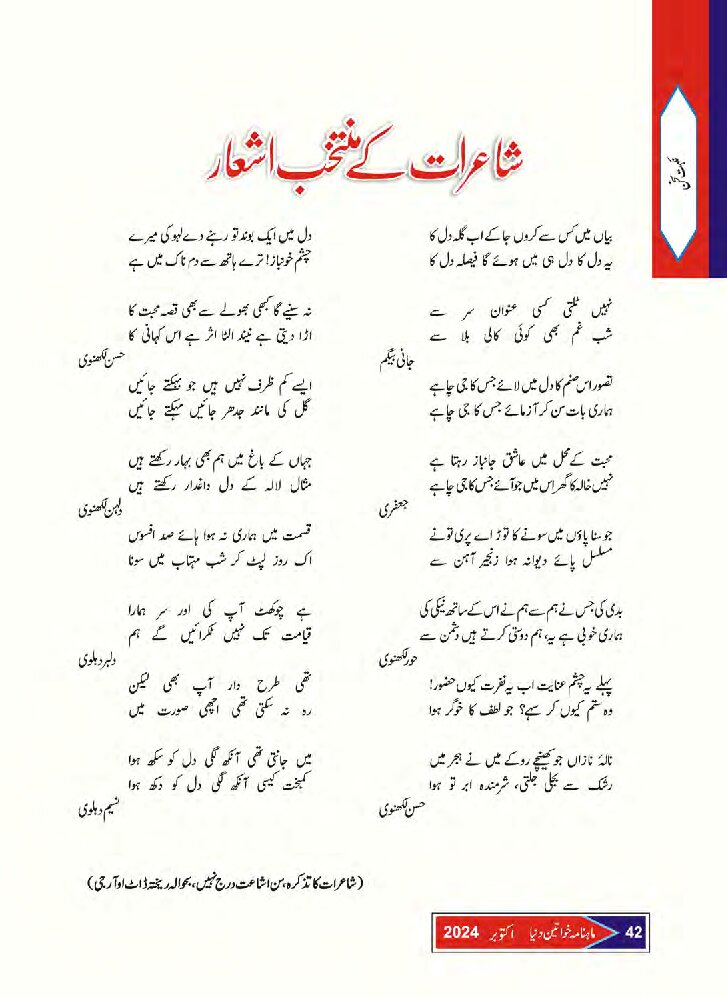 نکہت سخن
شاعرات کے منتخب اشعار
بیاں میں کس سے کروں جا کے اب گلہ دل کا
یہ دل کا دل ہی میں ہوئے گا فیصلہ دل کا
نہیں ٹلتی کسی عنوان سر سے
شب غم بھی کوئی کالی بلا سے
جانی بیگم
تصور اس صنم کا دل میں لائے جس کا جی چاہے
ہماری بات سن کر آزمائے جس کا جی چاہے
محبت کے محل میں عاشق جانباز رہتا ہے
نہیں خالہ کا گھر اس میں جو آئے جس کا جی چاہے
جعفری
جو سنا پاؤں میں سونے کا توڑ اے پری تونے
مسلسل پائے دیوانہ ہوا زنجیر آہن سے
بدی کی جس نے ہم سے ہم نے اس کے ساتھ نیکی کی
ہماری خوبی ہے یہ، ہم دوستی کرتے ہیں دشمن سے
حور لکھنوی
پہلے یہ چشم عنایت اب یہ نفرت کیوں حضور!
وہ ستم کیوں کر سہے؟ جو لطف کا خوگر ہوا
نالۂ نازاں جو کھینچے روکے میں نے ہجر میں
رشک سے بجلی جلتی، شرمندہ ابر تو ہوا
حسن لکھنوی
دل میں ایک بوند تو رہنے دے لہو کی میرے
چشم خونباز! ترے ہاتھ سے دم ناک میں ہے
نہ سنیے گا کبھی بھولے سے بھی قصہ محبت کا
اڑا دیتی ہے نیند الٹا اثر ہے اس کہانی کا
حسن لکھنوی
ایسے کم ظرف نہیں ہیں جو بہکتے جائیں
گل کی مانند جدھر جائیں مہکتے جائیں
جہاں کے باغ میں ہم بھی بہار رکھتے ہیں
مثال لالہ کے دل داغدار رکھتے ہیں
دلہن لکھنوی
قسمت میں ہماری نہ ہوا ہائے صد افسوس
اک روز لپٹ کر شب مہتاب میں سونا
ہے چوکھٹ آپ کی اور سر ہمارا
قیامت تک نہیں ٹکرائیں گے ہم
دلبر دہلوی
تھی طرح دار آپ بھی لیکن
رہ نہ سکتی تھی اچھی صورت میں
میں جانتی تھی آنکھ لگی دل کو سکھ ہوا
کمبخت کیسی آنکھ لگی دل کو دکھ ہوا
نسیم دہلوی
(شاعرات کا تذکرہ، سن اشاعت درج نہیں، بحوالہ ریختہ ڈاٹ او آر جی)
42 ماہنامہ خواتین دنیا اکتوبر 2024